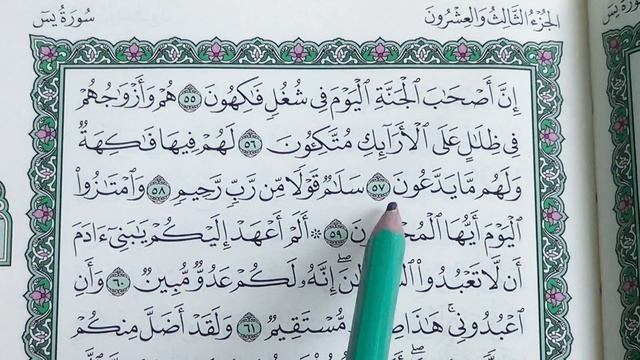 سُورَةُ يسٓ
الجُزْءُ الثَّالِثُ وَالعِشْرُونَ
إِنَّ أَصْحَٰبَ ٱلْجَنَّةِ ٱلْيَوْمَ فِى شُغُلٍ فَٰكِهُونَ ٥٥ هُمْ وَأَزْوَٰجُهُمْ
فِى ظِلَٰلٍ عَلَى ٱلْأَرَآئِكِ مُتَّكِـُٔونَ ٥٦ لَهُمْ فِيهَا فَٰكِهَةٌ
وَلَهُم مَّا يَدَّعُونَ ٥٧ سَلَٰمٌ قَوْلًا مِّن رَّبٍّ رَّحِيمٍ ٥٨ وَٱمْتَٰزُوا۟
ٱلْيَوْمَ أَيُّهَا ٥٩ ۞ أَلَمْ أَعْهَدْ إِلَيْكُمْ يَٰبَنِىٓ ءَادَمَ
أَن لَّا تَعْبُدُوا۟ إِنَّهُۥ لَكُمْ عَدُوٌّ مُّبِينٌ ٦٠ وَأَنِ
ٱعْبُدُونِى هَٰذَا مُّسْتَقِيمٌ ٦١ وَلَقَدْ أَضَلَّ مِنكُمْ